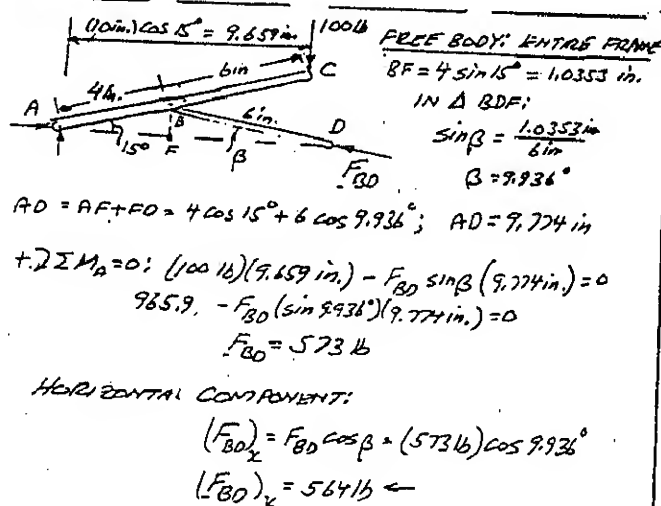 (10 in.) cos 15° = 9.659 in.
100 lb
FREE BODY: ENTIRE FRAME
6in
C
BF = 4 sin 15° = 1.0353 in.
4in.
IN Δ BDF:
A
6in.
B
D
sinβ = 1.0353in / 6in
15°
F
β
F_BD
β = 9.936°
AD = AF+FD = 4 cos 15° + 6 cos 9.936°; AD = 9.774 in
+⤸ΣM_A = 0: (100 lb)(9.659 in.) - F_BD sinβ (9.774 in.) = 0
965.9. - F_BD (sin 9.936°)(9.774 in.) = 0
F_BD = 573 lb
HORIZONTAL COMPONENT:
(F_BD)_x = F_BD cos β = (573 lb) cos 9.936°
(F_BD)_x = 564 lb ←